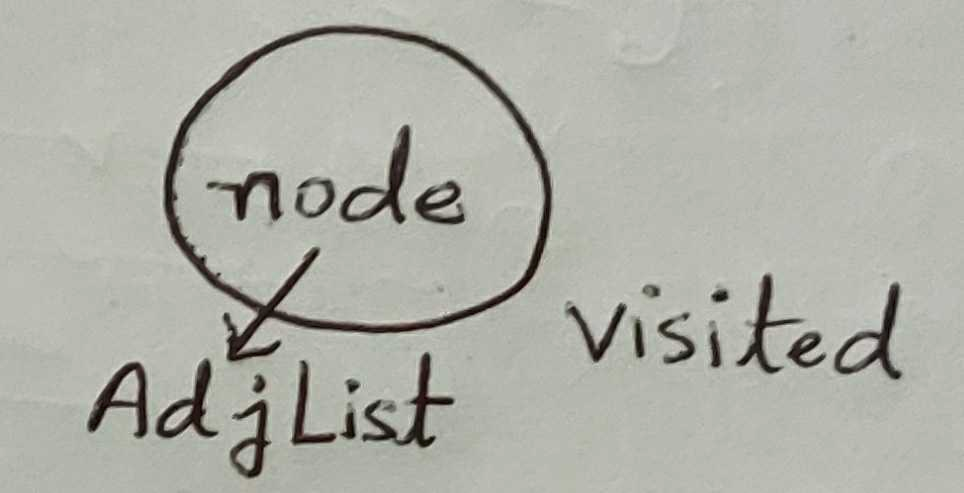 node
visited
AdjList